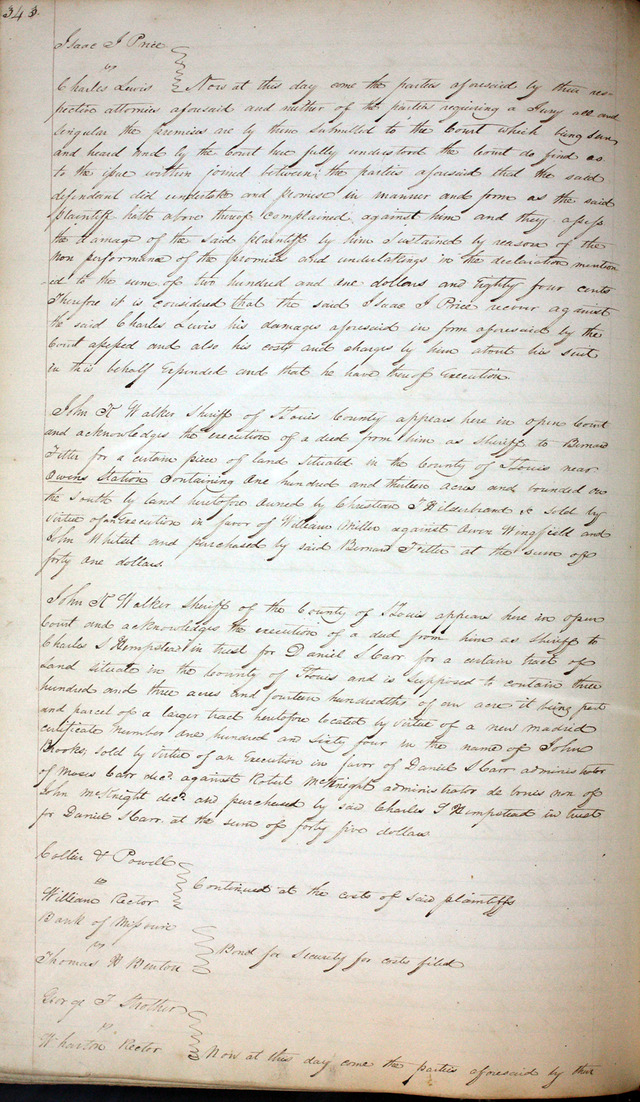 343.
Isaac J Price
vs
Charles Lewis } Now at this day come the parties aforesaid by their res-
pective attornies aforesaid and neither of the parties requiring a Jury all and
singular the premises are by them submitted to the Court which being seen
and heard and by the Court here fully understood the Court do find as
to the issue within joined between the parties aforesaid that the said
defendant did undertake and promise in manner and form as the said
plaintiff hath above thereof complained against him and they assess
the damage of the said plaintiff by him sustained by reason of the
non performance of the promises and undertakings in the declaration mention
ed to the sum of two hundred and one dollars and Eighty four cents
Therefore it is considered that the said Isaac J Price recover against
the said Charles Lewis his damages aforesaid in form aforesaid by the
Court assessed and also his costs and charges by him about his suit
in this behalf Expended and that he have thereof Execution.
John K Walker Sheriff of St Louis County appears here in open Court
and acknowledges the execution of a deed from him as Sheriff to Bernard
for a certain piece of land situated in the County of St Louis near
Owens Station containing One hundred and thirteen acres and bounded on
the South by land heretofore owned by Christian &c sold by
virtue of an Execution in favor of William Miller against Owen Wingfield and
John Whitset and purchased by said Bernard at the sum of
forty one dollars.
John K Walker Sheriff of the County of St Louis appears here in open
Court and acknowledges the execution of a deed from him as Sheriff to
Charles S Hempstead in trust for Daniel S Carr for a certain tract of
Land situate in the County of St Louis and is supposed to contain three
hundred and three acres and fourteen hundredths of an acre it being part
and parcel of a larger tract heretofore located by virtue of a new madrid
certificate number one hundred an sixty four in the name of John
Brooks, sold by virtue of an Execution in favor of Daniel S Carr administrator
of Moses Carr decd. against Robert McKnight administrator de bonis non of
John McKnight decd. and purchased by said Charles S Hempstead in trust
for Daniel S Carr. at the sum of forty five dollars
Collier & Powell
vs } Continued at the costs of said plaintiffs
William Rector
Bank of Missouri
vs } Bond for Security for costs filed
Thomas H Benton
George F Strother
vs
Wharton Rector } Now at this day come the parties aforesaid by their